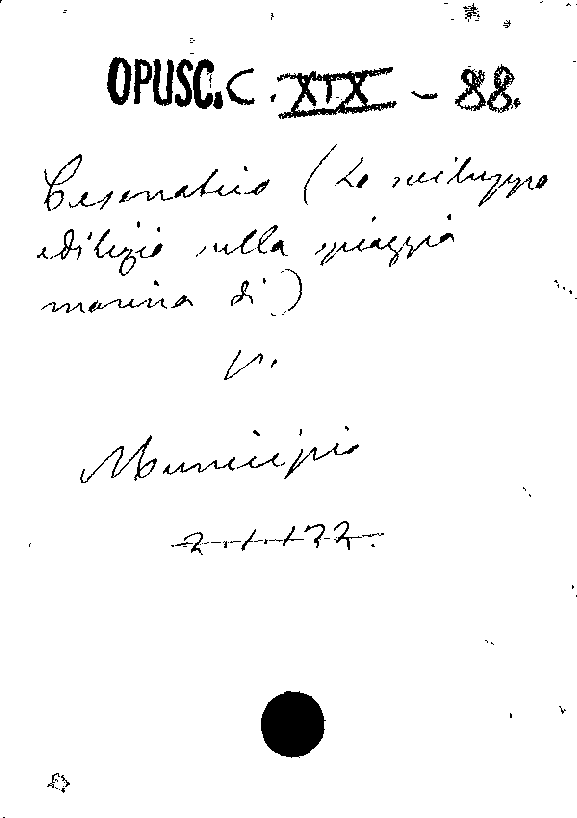 OPUSC. C. XIX - 88.
Cesenatico (Lo sviluppo
edilizio sulla spiaggia
marina di)
V.
Municipio
2.1.122.